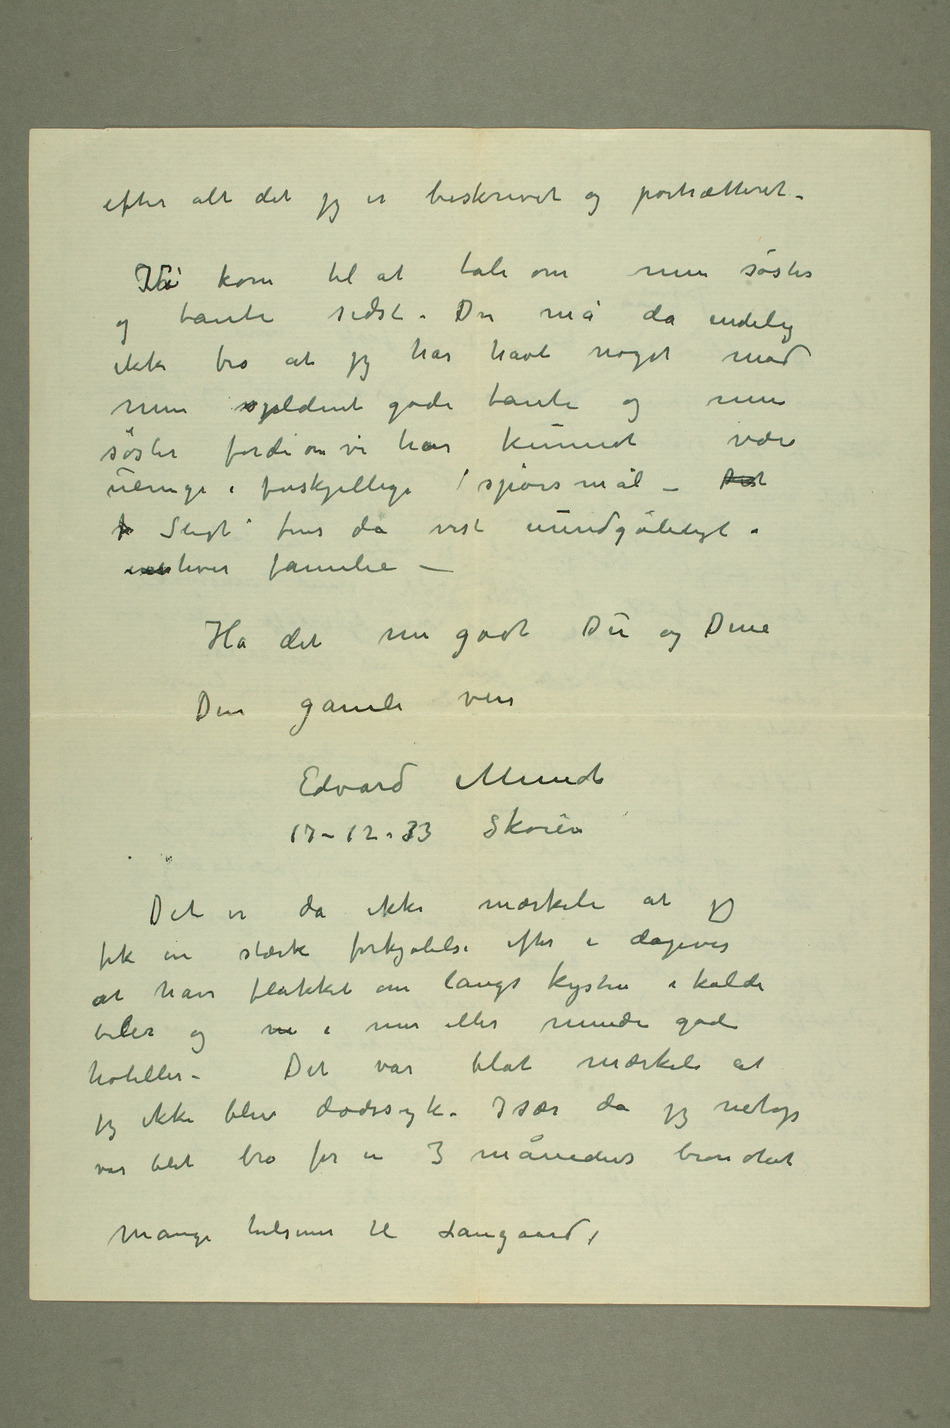 efter alt det jeg er beskrevet og portrætteret –
Vi kom til at tale om min søster
og tante sidst. Du må da endelig
ikke tro at jeg har havt noget mod
min sjeldent gode tante og min
søster fordi om vi har kunnet være
uenige i forskjellige spørsmål – Det
Sligt fins da vist uundgåeligt i
enhver familie –
Ha det nu godt Du og Dine
Din gamle ven
Edvard Munch
17–12–33 Skøien
Det er da ikke mærkeli at jeg
fik en stærk forkjølelse efter i dagevis
at have flakket om langs kysten i kolde
biler og i mer eller mindre gode
hoteller – Det var blot mærkeli at
jeg ikke blev dødssyk. Især da jeg netop
var blet bra for en 3 måneders bronchit
Mange hilsener til Langaard,